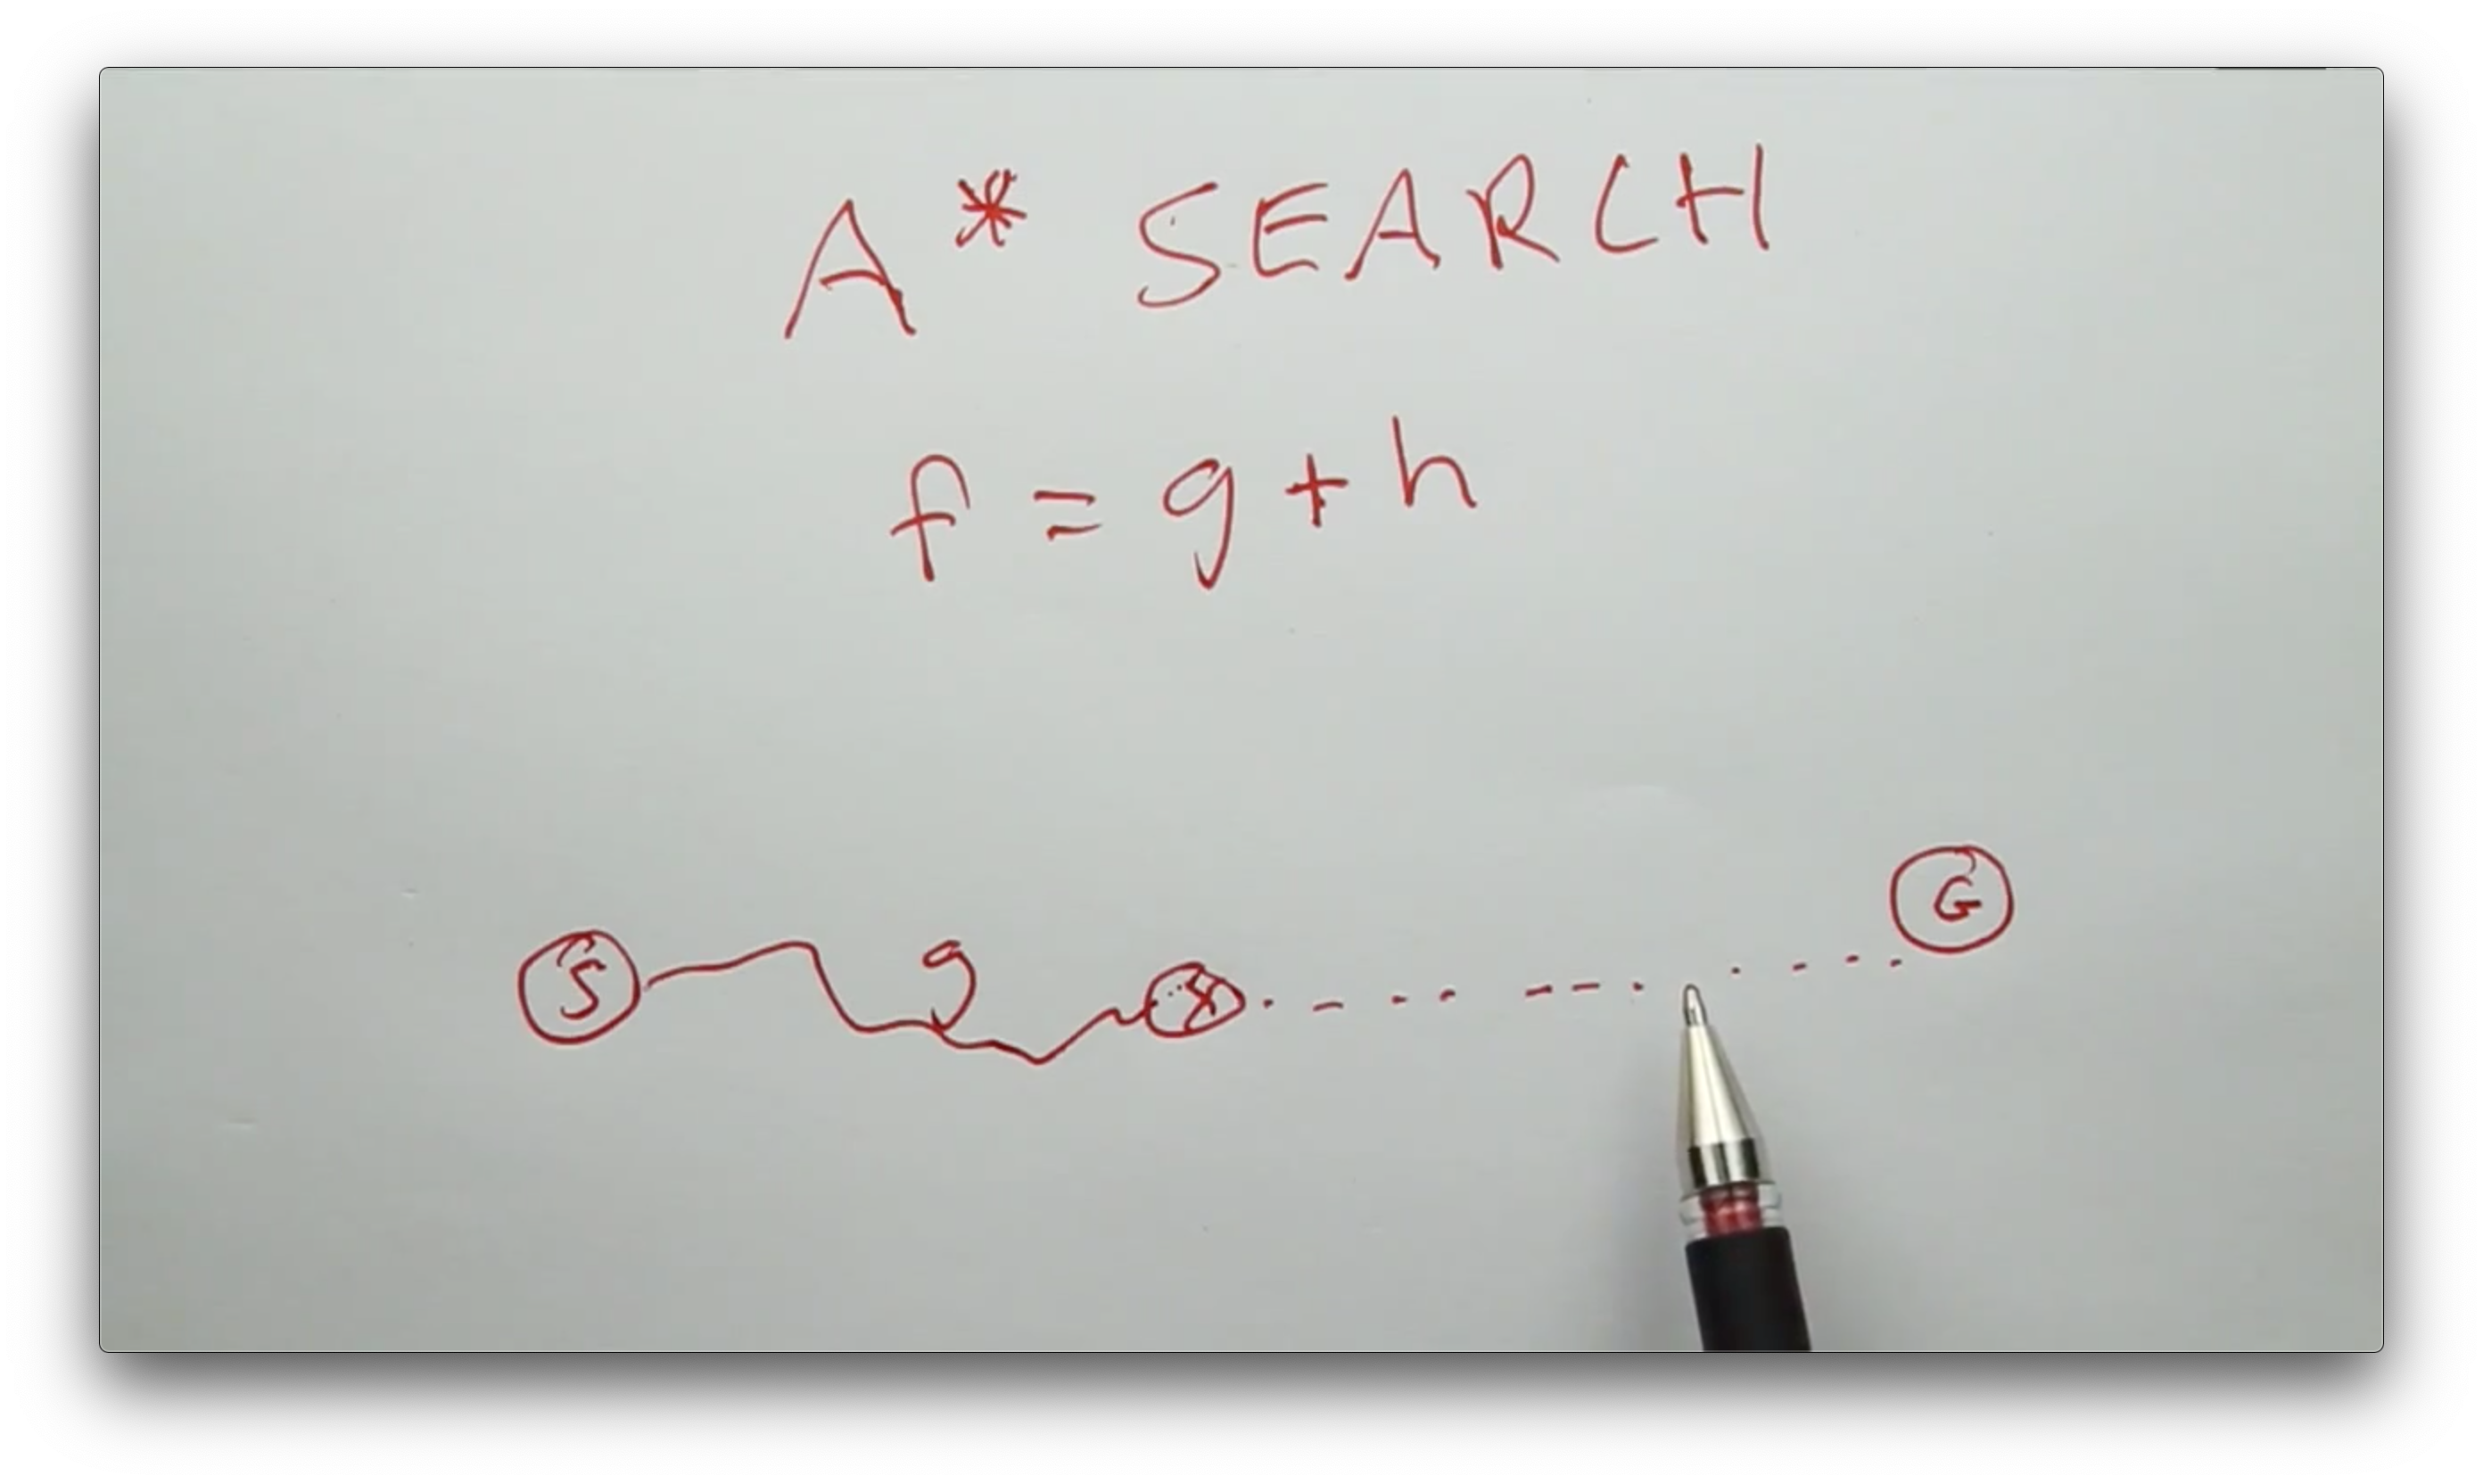 A* SEARCH
f = g + h
S g X G